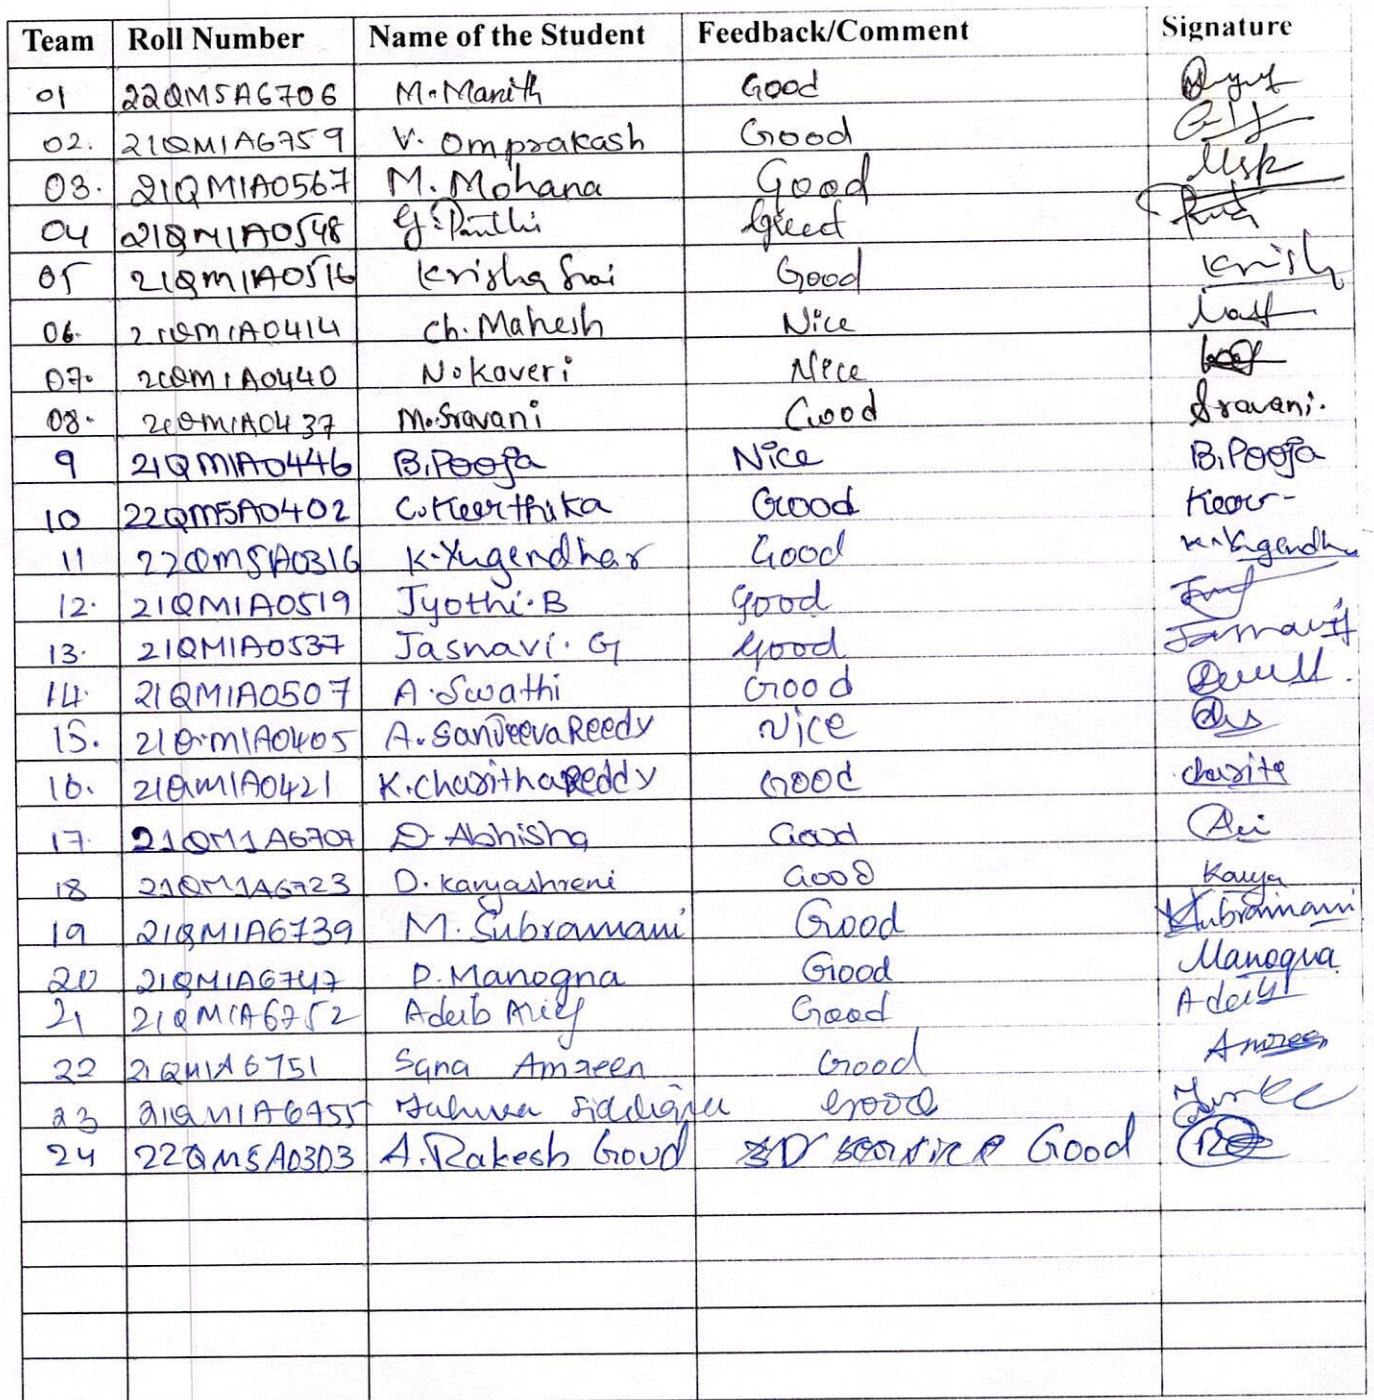 Team Roll Number Name of the Student Feedback/Comment Signature
01 22QM5A6706 M. Manith Good
02. 21QM1A6759 V. Omprakash Good
03. 21QM1A0567 M. Mohana Good Msk
04 21QM1A0548 G. Good
05 21QM1A0516 Krisha Sai Good Krish
06. 21QM1A0414 Ch. Mahesh Nice
07. 21QM1A0440 N. Kaveri Nice
08. 21QM1A0437 M. Sravani Good Sravani.
9 21QM1A0446 B. Pooja Nice B. Pooja
10 22QM5A0402 C. Keerthika Good Keer-
11 22QM5A0316 K. Yugendhar Good K. Yugendh
12. 21QM1A0519 Jyothi. B Good
13. 21QM1A0537 Jasnavi. G Good Jasnavi
14. 21QM1A0507 A. Swathi Good
15. 21QM1A0405 A. Sanjeeva Reedy Nice
16. 21QM1A0421 K. Charitha Reddy Good charite
17. 21QM1A6707 D. Abhisha Good
18 21QM1A6723 D. Kavyashreni Good Kavya
19 21QM1A6739 M. Subramani Good Subramani
20 21QM1A6747 P. Manogna Good Manogna
21 21QM1A6752 Adeib Arief Good Adeib
22 21QM1A6751 Sana Amreen Good Amreen
23 21QM1A6755 Good
24 22QM5A0303 A. Rakesh Goud 3D service Good